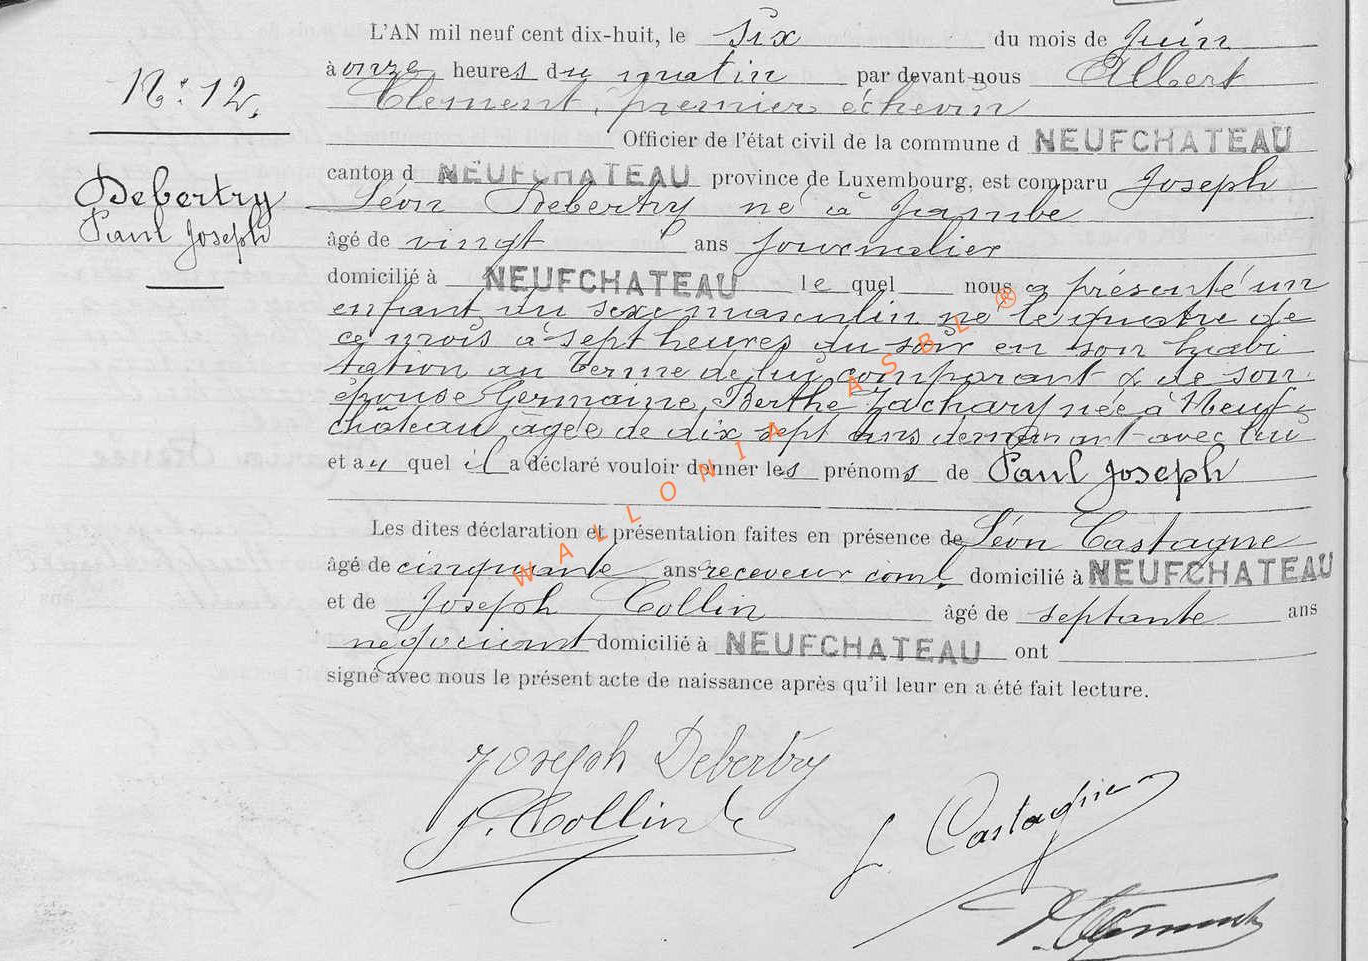 L'AN mil neuf cent dix-huit, le six du mois de Juin
à onze heures du matin par devant nous Albert
Clement, premier échevin
N°: 12.
Officier de l'état civil de la commune d NEUFCHATEAU
canton d NEUFCHATEAU province de Luxembourg, est comparu Joseph
Debertry
Paul Joseph
Léon Debertry né à Jambe
âgé de vingt ans journalier
domicilié à NEUFCHATEAU le quel nous a présenté un
enfant du sexe masculin né le quatre de
ce mois à sept heures du soir en son habi
tation au Terme de lui comparant & de son
épouse Germaine, Berthe Zachary née à Neuf-
château âgée de dix sept ans demeurant avec lui
et au quel il a déclaré vouloir donner les prénoms de Paul Joseph
Les dites déclaration et présentation faites en présence de Léon Castagne
âgé de cinquante ans receveur com. domicilié à NEUFCHATEAU
et de Joseph Collin âgé de septante ans
négociant domicilié à NEUFCHATEAU ont
signé avec nous le présent acte de naissance après qu'il leur en a été fait lecture.
Joseph Debertry
J. Collin
L Castagne
A. Clement
WALLONIA ASBL ®